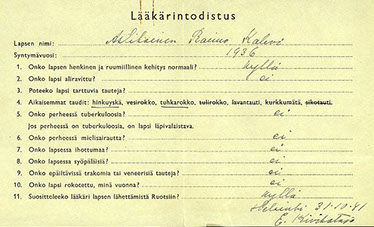 Lääkärintodistus
Lapsen nimi: Rauno Kalevi
Syntymävuosi: 1936
1. Onko lapsen henkinen ja ruumiillinen kehitys normaali? kyllä
2. Onko lapsi aliravittu? ei
3. Poteeko lapsi tarttuvia tauteja?
4. Aikaisemmat taudit: hinkuyskä, vesirokko, tuhkarokko, tulirokko, lavantauti, kurkkumätä, sikotauti.
5. Onko perheessä tuberkuloosia? ei
Jos perheessä on tuberkuloosia, on lapsi läpivalaistava.
6. Onko perheessä mielisairautta? ei
7. Onko lapsessa ihottumaa? ei
8. Onko lapsessa syöpäläisiä? ei
9. Onko epäiltävissä trakomia tai veneerisiä tauteja? ei
10. Onko lapsi rokotettu, minä vuonna? ei
11. Suositteleeko lääkäri lapsen lähettämistä Ruotsiin? kyllä
Helsinki 31.10.41
E. Kivikatajo